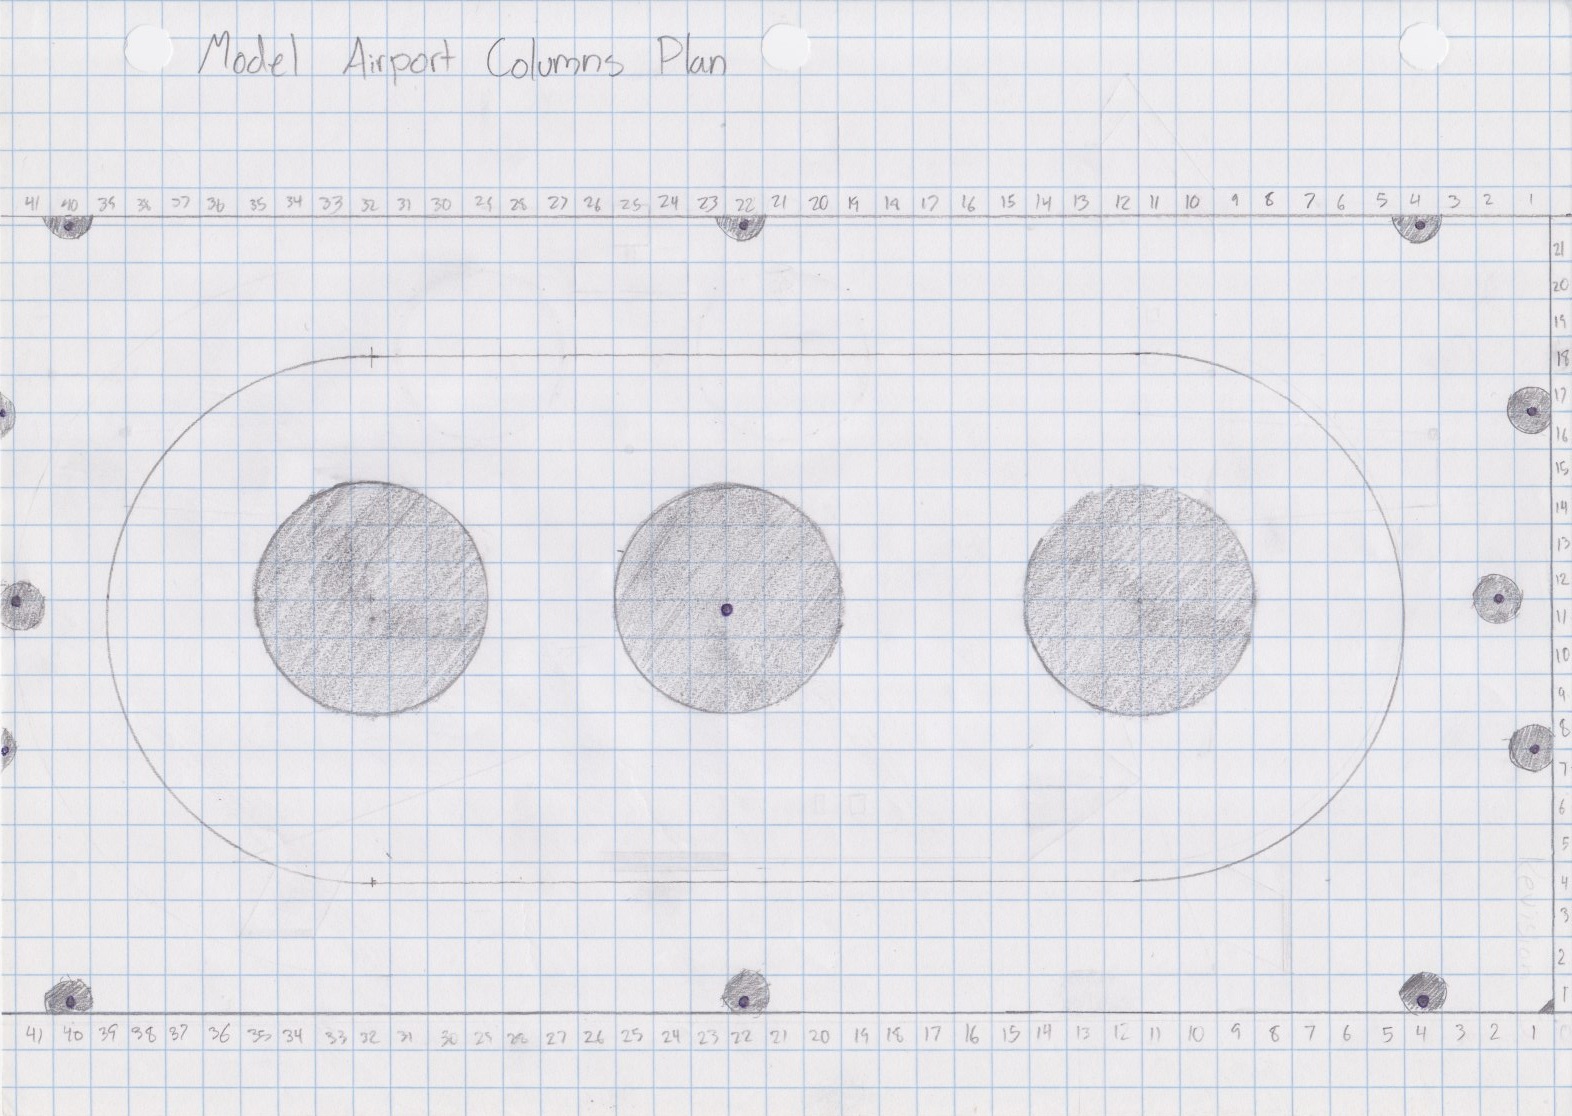 Model Airport Columns Plan
41 40 39 38 37 36 35 34 33 32 31 30 29 28 27 26 25 24 23 22 21 20 19 18 17 16 15 14 13 12 11 10 9 8 7 6 5 4 3 2 1
21
20
19
18
17
16
15
14
13
12
11
10
9
8
7
6
5
4
3
2
1
41 40 39 38 37 36 35 34 33 32 31 30 29 28 27 26 25 24 23 22 21 20 19 18 17 16 15 14 13 12 11 10 9 8 7 6 5 4 3 2 1